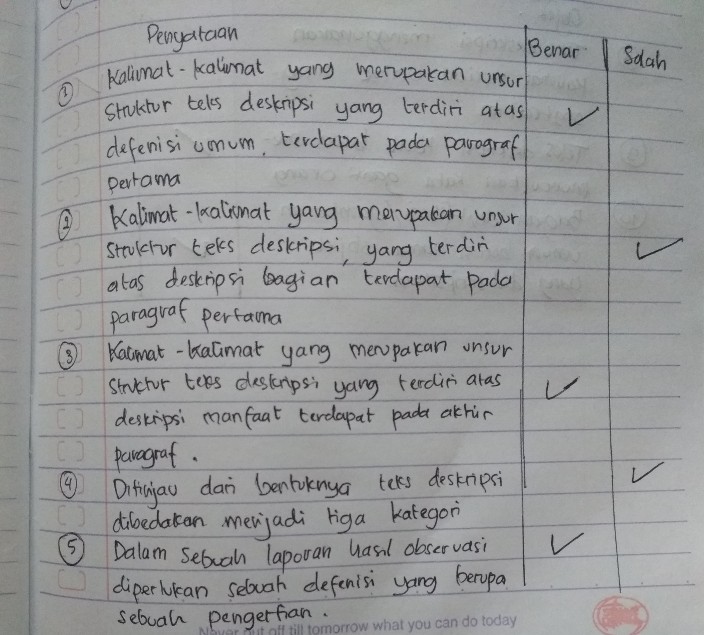 Penyataan Benar Salah
① Kalimat-kalimat yang merupakan unsur
Struktur teks deskripsi yang terdiri atas ✓
defenisi umum, terdapat pada paragraf
pertama
② Kalimat-kalimat yang merupakan unsur
Struktur teks deskripsi, yang terdiri ✓
atas deskripsi bagian terdapat pada
paragraf pertama
③ Kalimat-kalimat yang merupakan unsur
Struktur teks deskripsi yang terdiri atas ✓
deskripsi manfaat terdapat pada akhir
paragraf.
④ Ditinjau dari bentuknya teks deskripsi ✓
dibedakan menjadi tiga kategori
⑤ Dalam sebuah laporan hasil observasi ✓
diperlukan sebuah defenisi yang berupa
sebuah pengertian.
Never put off till tomorrow what you can do today